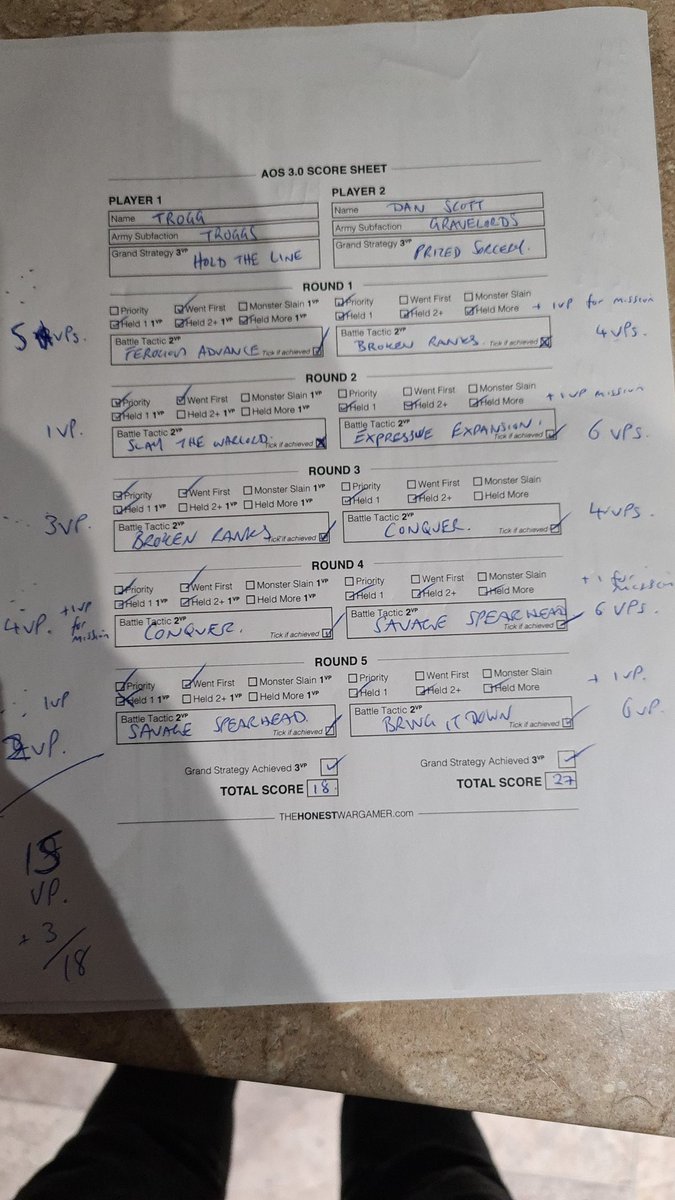 AOS 3.0 SCORE SHEET
PLAYER 1 PLAYER 2
Name TROGG Name DAN SCOTT
Army Subfaction TROGGS Army Subfaction GRAVELORDS
Grand Strategy 3VP HOLD THE LINE Grand Strategy 3VP PRIZED SORCERY.
ROUND 1
Priority Went First Monster Slain 1VP Priority Went First Monster Slain
Held 1 1VP Held 2+ 1VP Held More 1VP Held 1 Held 2+ Held More + 1VP for mission
5 VPs. Battle Tactic 2VP Battle Tactic 2VP 4 VPs.
FEROCIOUS ADVANCE Tick if achieved BROKEN RANKS. Tick if achieved
ROUND 2
Priority Went First Monster Slain 1VP Priority Went First Monster Slain
Held 1 1VP Held 2+ 1VP Held More 1VP Held 1 Held 2+ Held More + 1VP mission
1 VP. Battle Tactic 2VP Battle Tactic 2VP 6 VPs.
SLAY THE WARLORD. Tick if achieved EXPRESSIVE EXPANSION. Tick if achieved
ROUND 3
Priority Went First Monster Slain 1VP Priority Went First Monster Slain
Held 1 1VP Held 2+ 1VP Held More 1VP Held 1 Held 2+ Held More
3VP. Battle Tactic 2VP Battle Tactic 2VP 4 VPs.
BROKEN RANKS Tick if achieved CONQUER. Tick if achieved
ROUND 4
Priority Went First Monster Slain 1VP Priority Went First Monster Slain
Held 1 1VP Held 2+ 1VP Held More 1VP Held 1 Held 2+ Held More + 1 for mission
4VP. +1VP for mission Battle Tactic 2VP Battle Tactic 2VP 6 VPs.
CONQUER. Tick if achieved SAVAGE SPEARHEAD Tick if achieved
ROUND 5
Priority Went First Monster Slain 1VP Priority Went First Monster Slain
Held 1 1VP Held 2+ 1VP Held More 1VP Held 1 Held 2+ Held More + 1VP.
1VP Battle Tactic 2VP Battle Tactic 2VP 6VP.
VP. SAVAGE SPEARHEAD. Tick if achieved BRING IT DOWN Tick if achieved
Grand Strategy Achieved 3VP Grand Strategy Achieved 3VP
TOTAL SCORE 18. TOTAL SCORE 27
THEHONESTWARGAMER.com
15
VP.
+ 3
/18